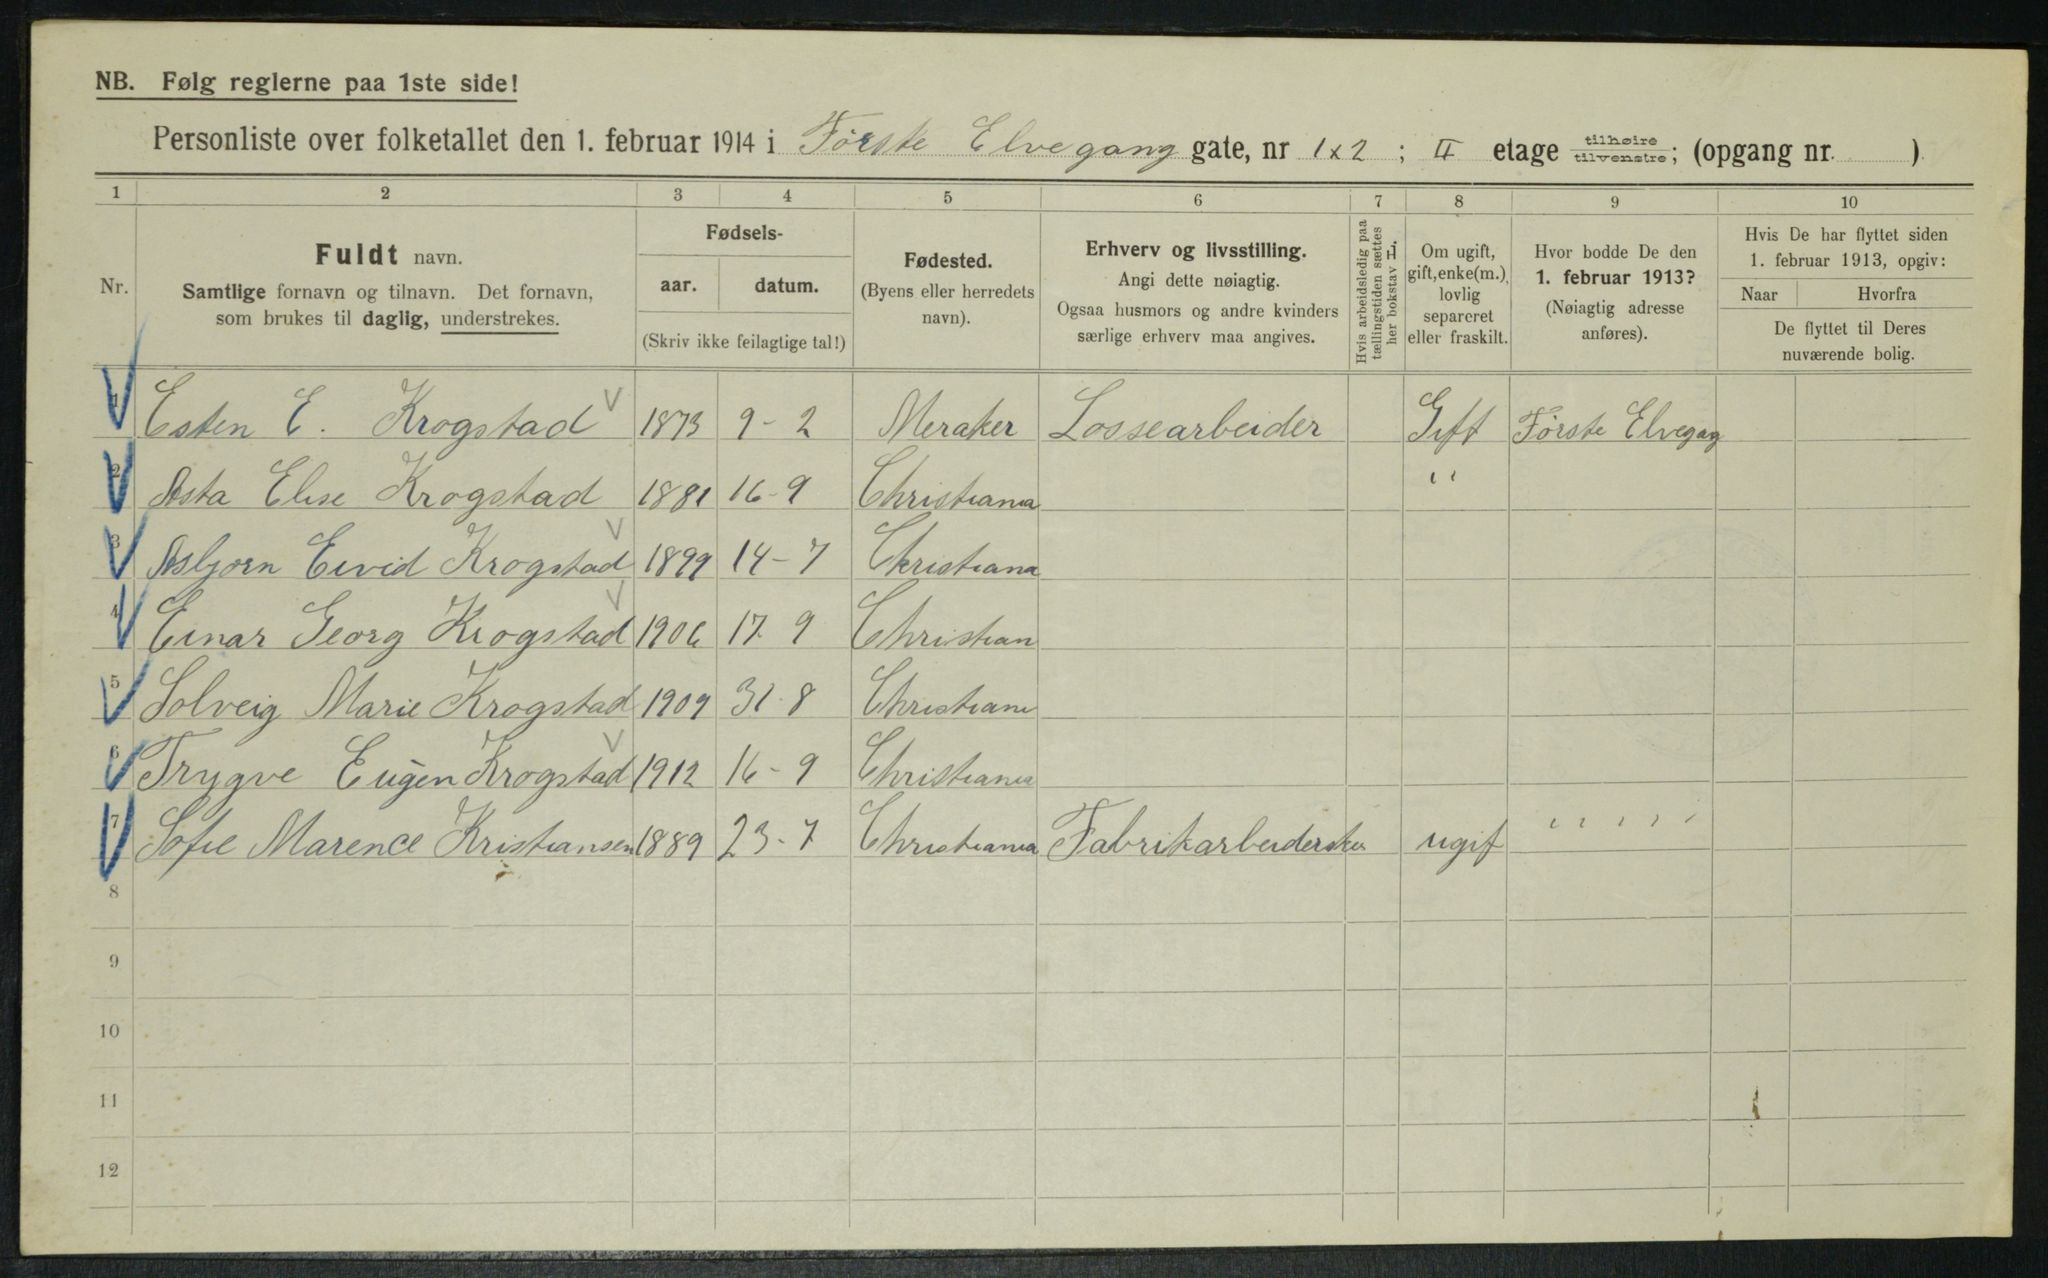 NB. Følg reglerne paa 1ste side!
Personliste over folketallet den 1. februar 1914 i Første Elvegang gate, nr 1x2 ; II etage tilhøire tilvenstre; (opgang nr. )
1 2 3 4 5 6 7 8 9 10
Nr.
Fuldt navn.
Samtlige fornavn og tilnavn. Det fornavn,
som brukes til daglig, understrekes.
Fødsels-
aar. datum.
(Skriv ikke feilagtige tal!)
Fødested.
(Byens eller herredets
navn).
Erhverv og livsstilling.
Angi dette nøiagtig.
Ogsaa husmors og andre kvinders
særlige erhverv maa angives.
Hvis arbeidsledig paa
tællingstiden sættes
her bokstav L.
Om ugift,
gift, enke(m.),
lovlig
separeret
eller fraskilt.
Hvor bodde De den
1. februar 1913?
(Nøiagtig adresse
anføres).
Hvis De har flyttet siden
1. februar 1913, opgiv:
Naar Hvorfra
De flyttet til Deres
nuværende bolig.
1 Esten E. Krogstad 1873 9-2 Meraker Lossearbeider Gift Første Elvegag
2 Asta Elise Krogstad 1881 16-9 Christiania "
3 Asbjørn Eivid Krogstad 1899 14-7 Christiana
4 Einar Georg Krogstad 1906 17 9 Christian
5 Solveig Marie Krogstad 1909 31.8 Christiani
6 Trygve Eugen Krogstad 1912 16-9 Christiania
7 Sofie Marence Kristiansen 1889 23-7 Christiania Fabrikarbeiderske ugif " " " " "
8
9
10
11
12